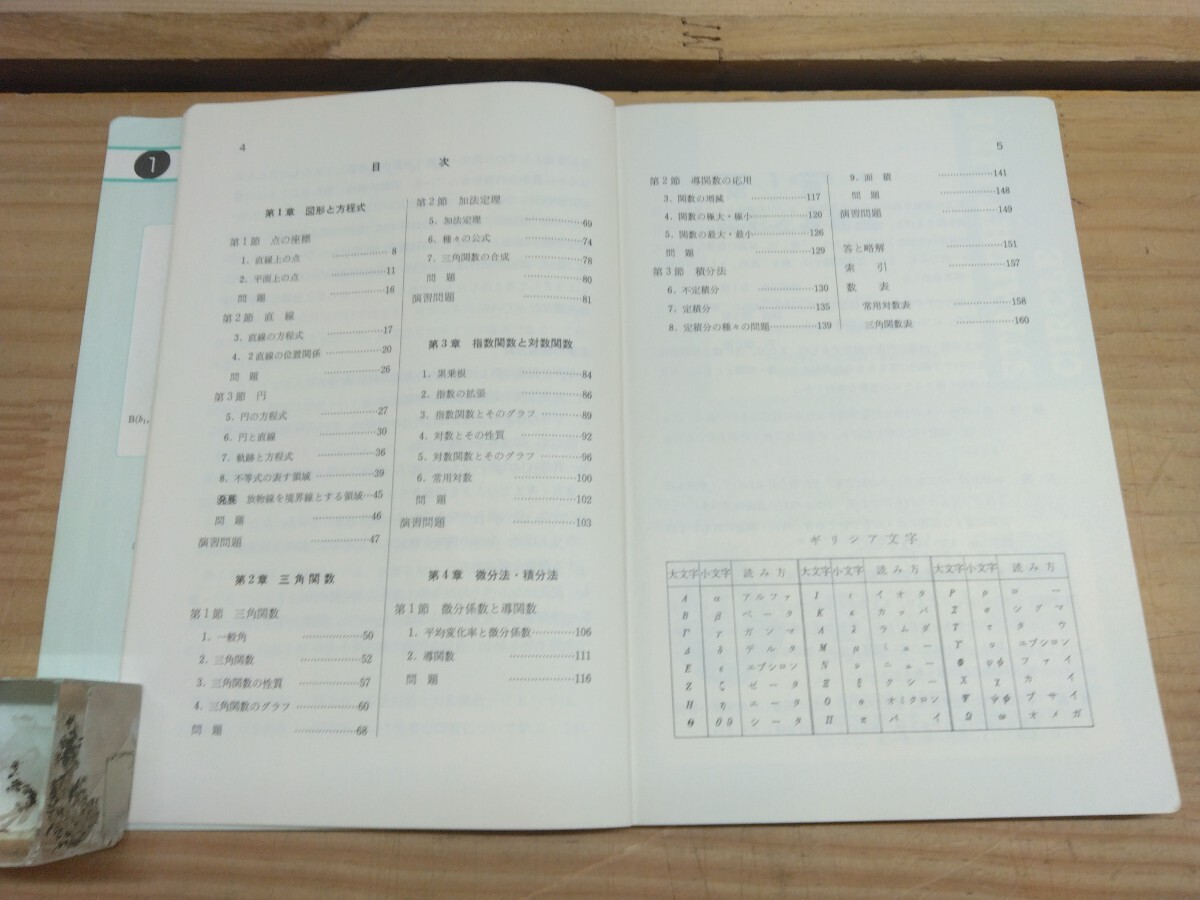 1
B(b₁,
4
目 次
第1章 図形と方程式
第1節 点の座標
1. 直線上の点 …………… 8
2. 平面上の点 ……………11
問 題 ……………16
第2節 直 線
3. 直線の方程式 ……………17
4. 2直線の位置関係 ……………20
問 題 ……………26
第3節 円
5. 円の方程式 ……………27
6. 円と直線 ……………30
7. 軌跡と方程式 ……………36
8. 不等式の表す領域 ……………39
発展 放物線を境界線とする領域…45
問 題 ……………46
演習問題 ……………47
第2章 三角関数
第1節 三角関数
1. 一般角 ……………50
2. 三角関数 ……………52
3. 三角関数の性質 ……………57
4. 三角関数のグラフ ……………60
問 題 ……………68
第2節 加法定理
5. 加法定理 ……………69
6. 種々の公式 ……………74
7. 三角関数の合成 ……………78
問 題 ……………80
演習問題 ……………81
第3章 指数関数と対数関数
1. 累乗根 ……………84
2. 指数の拡張 ……………86
3. 指数関数とそのグラフ ……………89
4. 対数とその性質 ……………92
5. 対数関数とそのグラフ ……………96
6. 常用対数 ……………100
問 題 ……………102
演習問題 ……………103
第4章 微分法・積分法
第1節 微分係数と導関数
1. 平均変化率と微分係数…………106
2. 導関数 ……………111
問 題 ……………116
5
第2節 導関数の応用
3. 関数の増減 ……………117
4. 関数の極大・極小……………120
5. 関数の最大・最小……………126
問 題 ……………129
第3節 積分法
6. 不定積分 ……………130
7. 定積分 ……………135
8. 定積分の種々の問題……………139
9. 面 積 ……………141
問 題 ……………148
演習問題 ……………149
答と略解 ……………151
索 引 ……………157
数 表
常用対数表 ……………158
三角関数表 ……………160
ギリシア文字
大文字 小文字 読み方 大文字 小文字 読み方 大文字 小文字 読み方
Α α アルファ Ι ι イオタ Ρ ρ ロー
Β β ベータ Κ κ カッパ Σ σ シグマ
Γ γ ガンマ Λ λ ラムダ Τ τ タウ
Δ δ デルタ Μ μ ミュー Υ υ ユプシロン
Ε ε エプシロン Ν ν ニュー Φ φϕ ファイ
Ζ ζ ゼータ Ξ ξ クシー Χ χ カイ
Η η エータ Ο ο オミクロン Ψ ψ プサイ
Θ θϑ シータ Π π パイ Ω ω オメガ